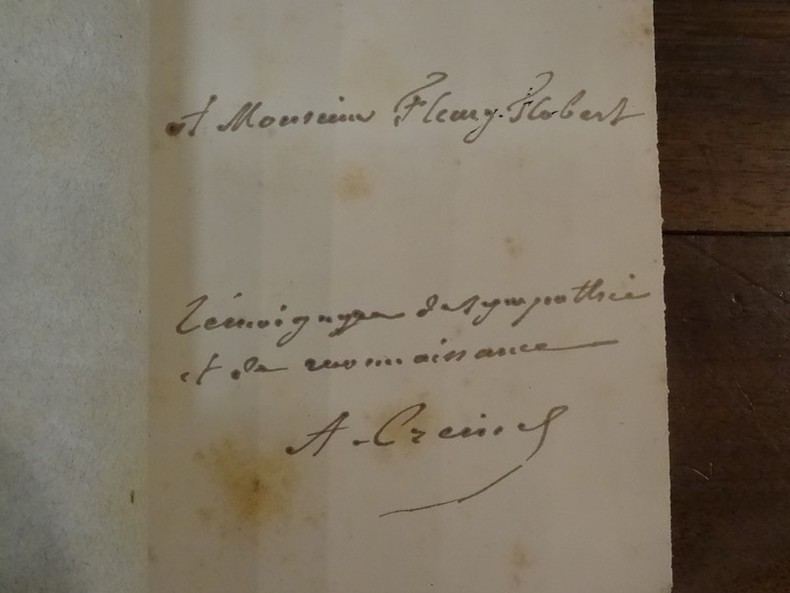 A Monsieur Fleury-Flobert
Témoignage de sympathie
et de reconnaissance